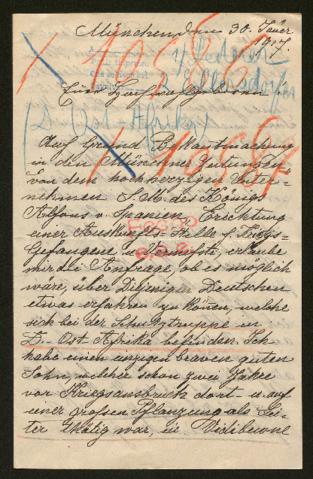 München den 30. Jäner
1917.
Euer Hochwohlgeboren
(D. Ost-Afrika)
Auf Grund Bekantmachung
in den Münchner Zeitungen
von dem hochherzigen Unter-
nehmen S. M. des Königs
Alfons v. Spanien, Errichtung
einer Auskunfts-Stelle f. Kriegs-
Gefangene u. Vermißte, erlaube
mir die Anfrage, ob es möglich
wäre, über Diejenigen Deutschen
etwas erfahren zu könen, welche
sich bei der Schutztruppe in
D. Ost Afrika befinden. Ich
habe einen einzigen braven guten
Sohn, welcher schon zwei Jahre
vor Kriegsausbruch dort u. auf
einer grossen Pflanzung als Lei-
ter thätig war, in